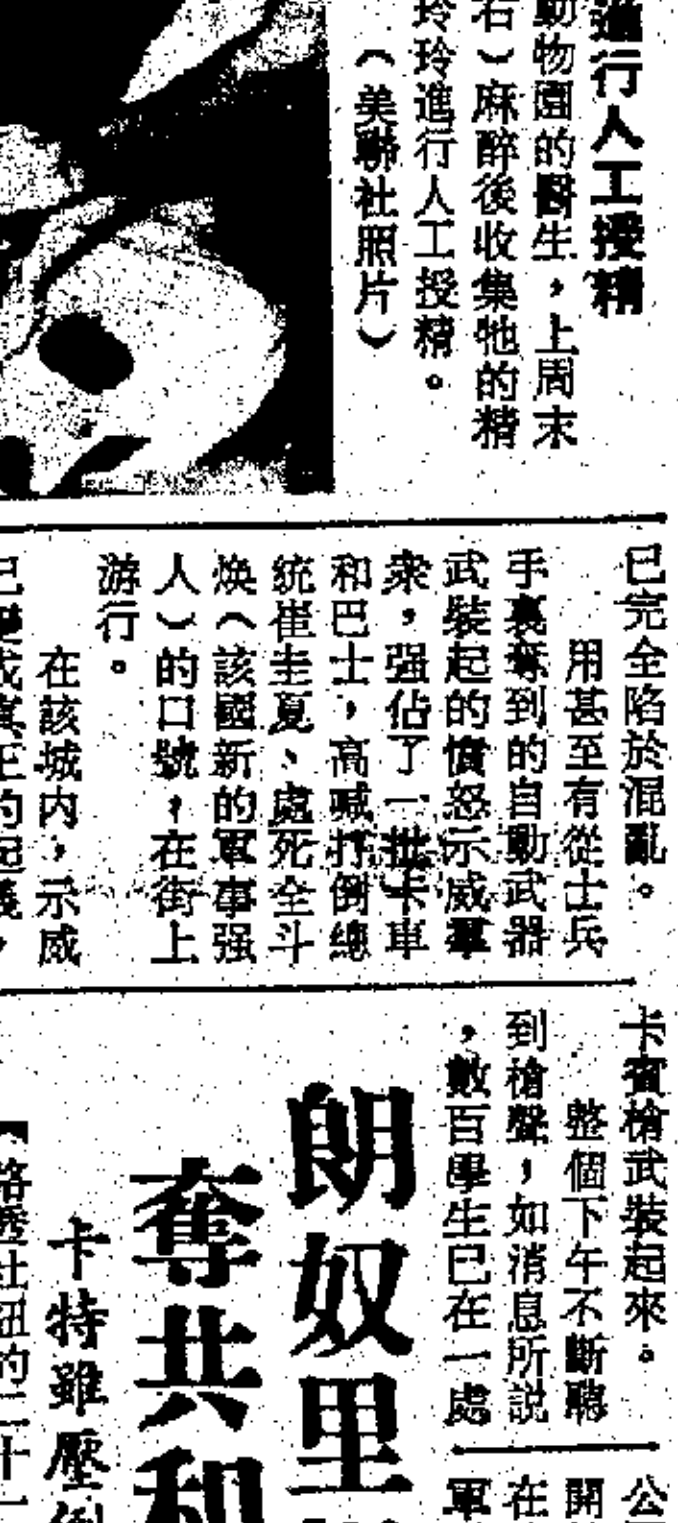 進行人工授精
動物園的醫生，上周末
右）麻醉後收集牠的精
玲玲進行人工授精。
（美聯社照片）
已完全陷於混亂。
用甚至有從士兵
手裏奪到的自動武器
武裝起的憤怒示威羣
衆，强佔了一批卡車
和巴士，高喊打倒總
統崔圭夏、處死全斗
煥（該國新的軍事强
人）的口號，在街上
游行。
在該城内，示威
已變成真正的起義，
卡賓槍武裝起來。
整個下午不斷聽
到槍聲，如消息所説
，數百學生已在一處
朗奴里
奪共和
卡特雖壓倒
【路透社紐約二十一
公
開
在
軍